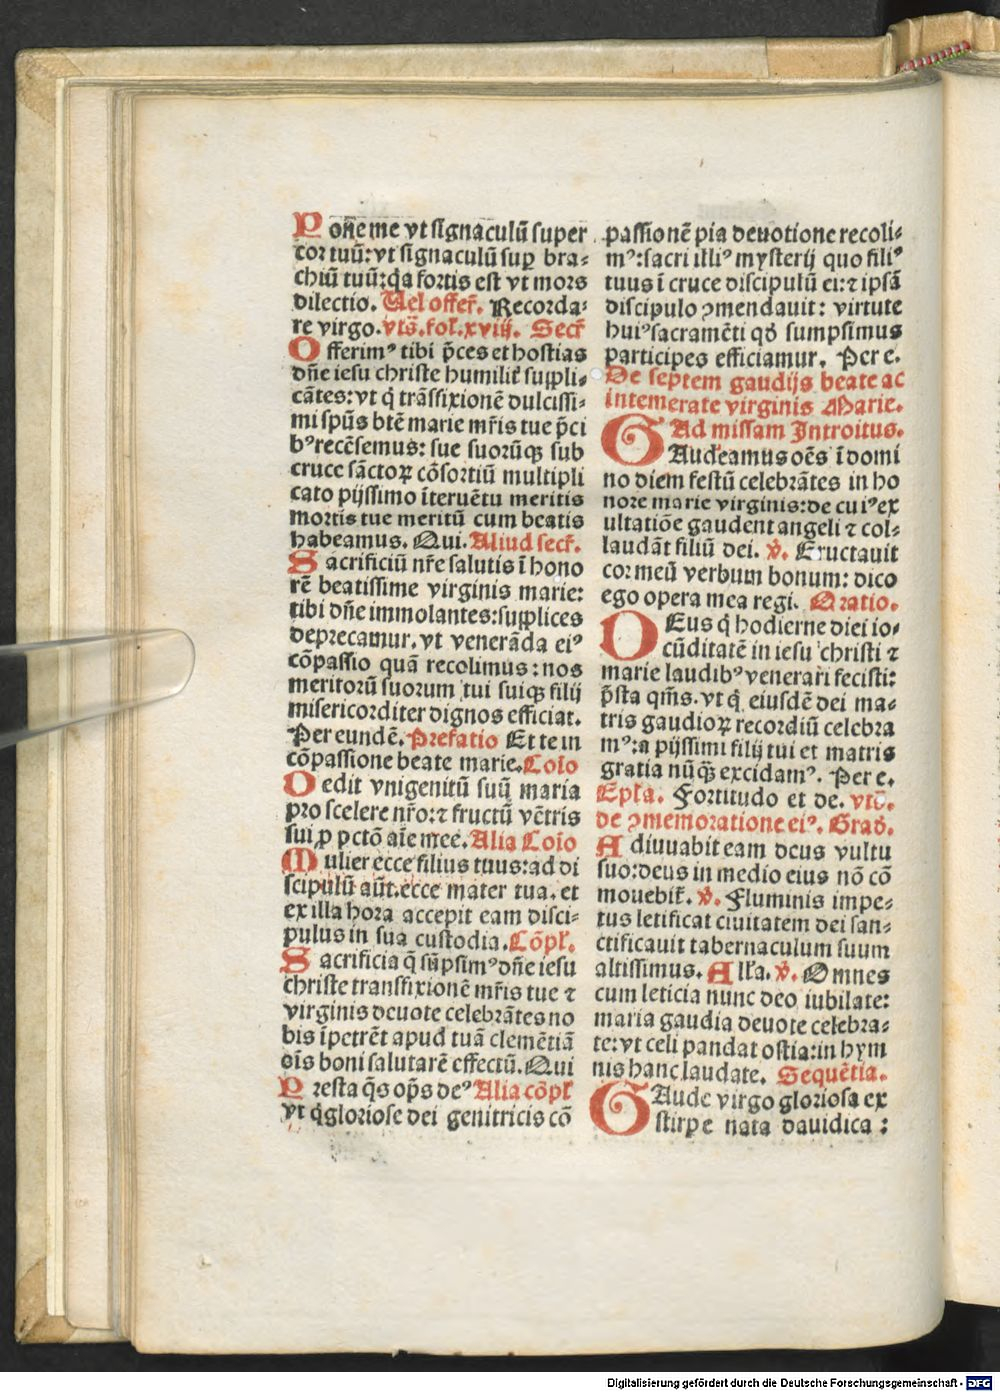 Pone me vt signaculũ super
cor tuũ: vt signaculũ sup̱ bra⸗
chiũ tuũ: q̃a fortis est vt mors
dilectio. Uel offer̃. Recorda⸗
re virgo. vts̃. fol̃. xviij. Secr̃
Offerimꝰ tibi p̃ces et hostias
dñe iesu christe humilit̃ suppli⸗
cãtes: vt q̃ trãsfixionẽ dulcissi⸗
mi spũs btẽ marie mr̃is tue p̃ci
bꝰ recẽsemus: sue suorũqꝫ sub
cruce sãctoꝝ cõsortiũ multipli
cato pijssimo ĩteruẽtu meritis
mortis tue meritũ cum beatis
habeamus. Qui. Aliud secr̃.
Sacrificiũ nr̃e salutis ĩ hono
rẽ beatissime virginis marie:
tibi dñe immolantes: supplices
deprecamur. vt venerãda eiꝰ
cõpassio quã recolimus: nos
meritorũ suorum tui suiqꝫ filij
misericorditer dignos efficiat.
Per eundẽ. Prefatio Et te in
cõpassione beate marie. Cõio
Dedit vnigenitũ suũ maria
pro scelere nr̃o: ⁊ fructũ vẽtris
sui ꝓ pctõ aĩe mee. Alia Cõio
Mulier ecce filius tuus: ad di
scipulũ aũt. ecce mater tua. et
ex illa hora accepit eam disci⸗
pulus in sua custodia. Cõpl̃.
Sacrificia q̃ sũpsimꝰ dñe iesu
christe transfixionẽ mr̃is tue ⁊
virginis deuote celebrãtes no
bis ĩpetrẽt apud tuã clemẽtiã
oĩs boni salutarẽ effectũ. Qui
Presta q̃s op̃s deꝰ Alia cõpl̃
vt q̃ gloriose dei genitricis cõ
passionẽ pia deuotione recoli⸗
mꝰ: sacri illiꝰ mysterij quo filiꝰ
tuus ĩ cruce discipulũ ei: ⁊ ipsã
discipulo ꝯmendauit: virtute
huiꝰ sacramẽti qđ sumpsimus
participes efficiamur. Per e.
De septem gaudijs beate ac
intemerate virginis Marie.
Ad missam Introitus.
GAudeamus oẽs ĩ domi
no diem festũ celebrãtes in ho
nore marie virginis: de cuiꝰ ex
ultatiõe gaudent angeli ⁊ col⸗
laudãt filiũ dei. ℣. Eructauit
cor meũ verbum bonum: dico
ego opera mea regi. Oratio.
DEus q̃ hodierne diei io⸗
cũditatẽ in iesu christi ⁊
marie laudibꝰ venerari fecisti:
p̃sta qm̃s. vt q̃ eiusdẽ dei ma⸗
tris gaudioꝝ recordiũ celebra
mꝰ: a pijssimi filij tui et matris
gratia nũqꝫ̃ excidamꝰ. Per e.
Ep̃la. Fortitudo et de. vts̃.
de ꝯmemoratione eiꝰ. Grad̃.
Adiuuabit eam deus vultu
suo: deus in medio eius nõ cõ
mouebit̃. ℣. Fluminis impe⸗
tus letificat ciuitatem dei san⸗
ctificauit tabernaculum suum
altissimus. All̃a. ℣. Omnes
cum leticia nunc deo iubilate:
maria gaudia deuote celebra⸗
te: vt celi pandat ostia: in hym
nis hanc laudate. Sequẽtia.
GAude virgo gloriosa ex
stirpe nata dauidica:
Digitalisierung gefördert durch die Deutsche Forschungsgemeinschaft - DFG